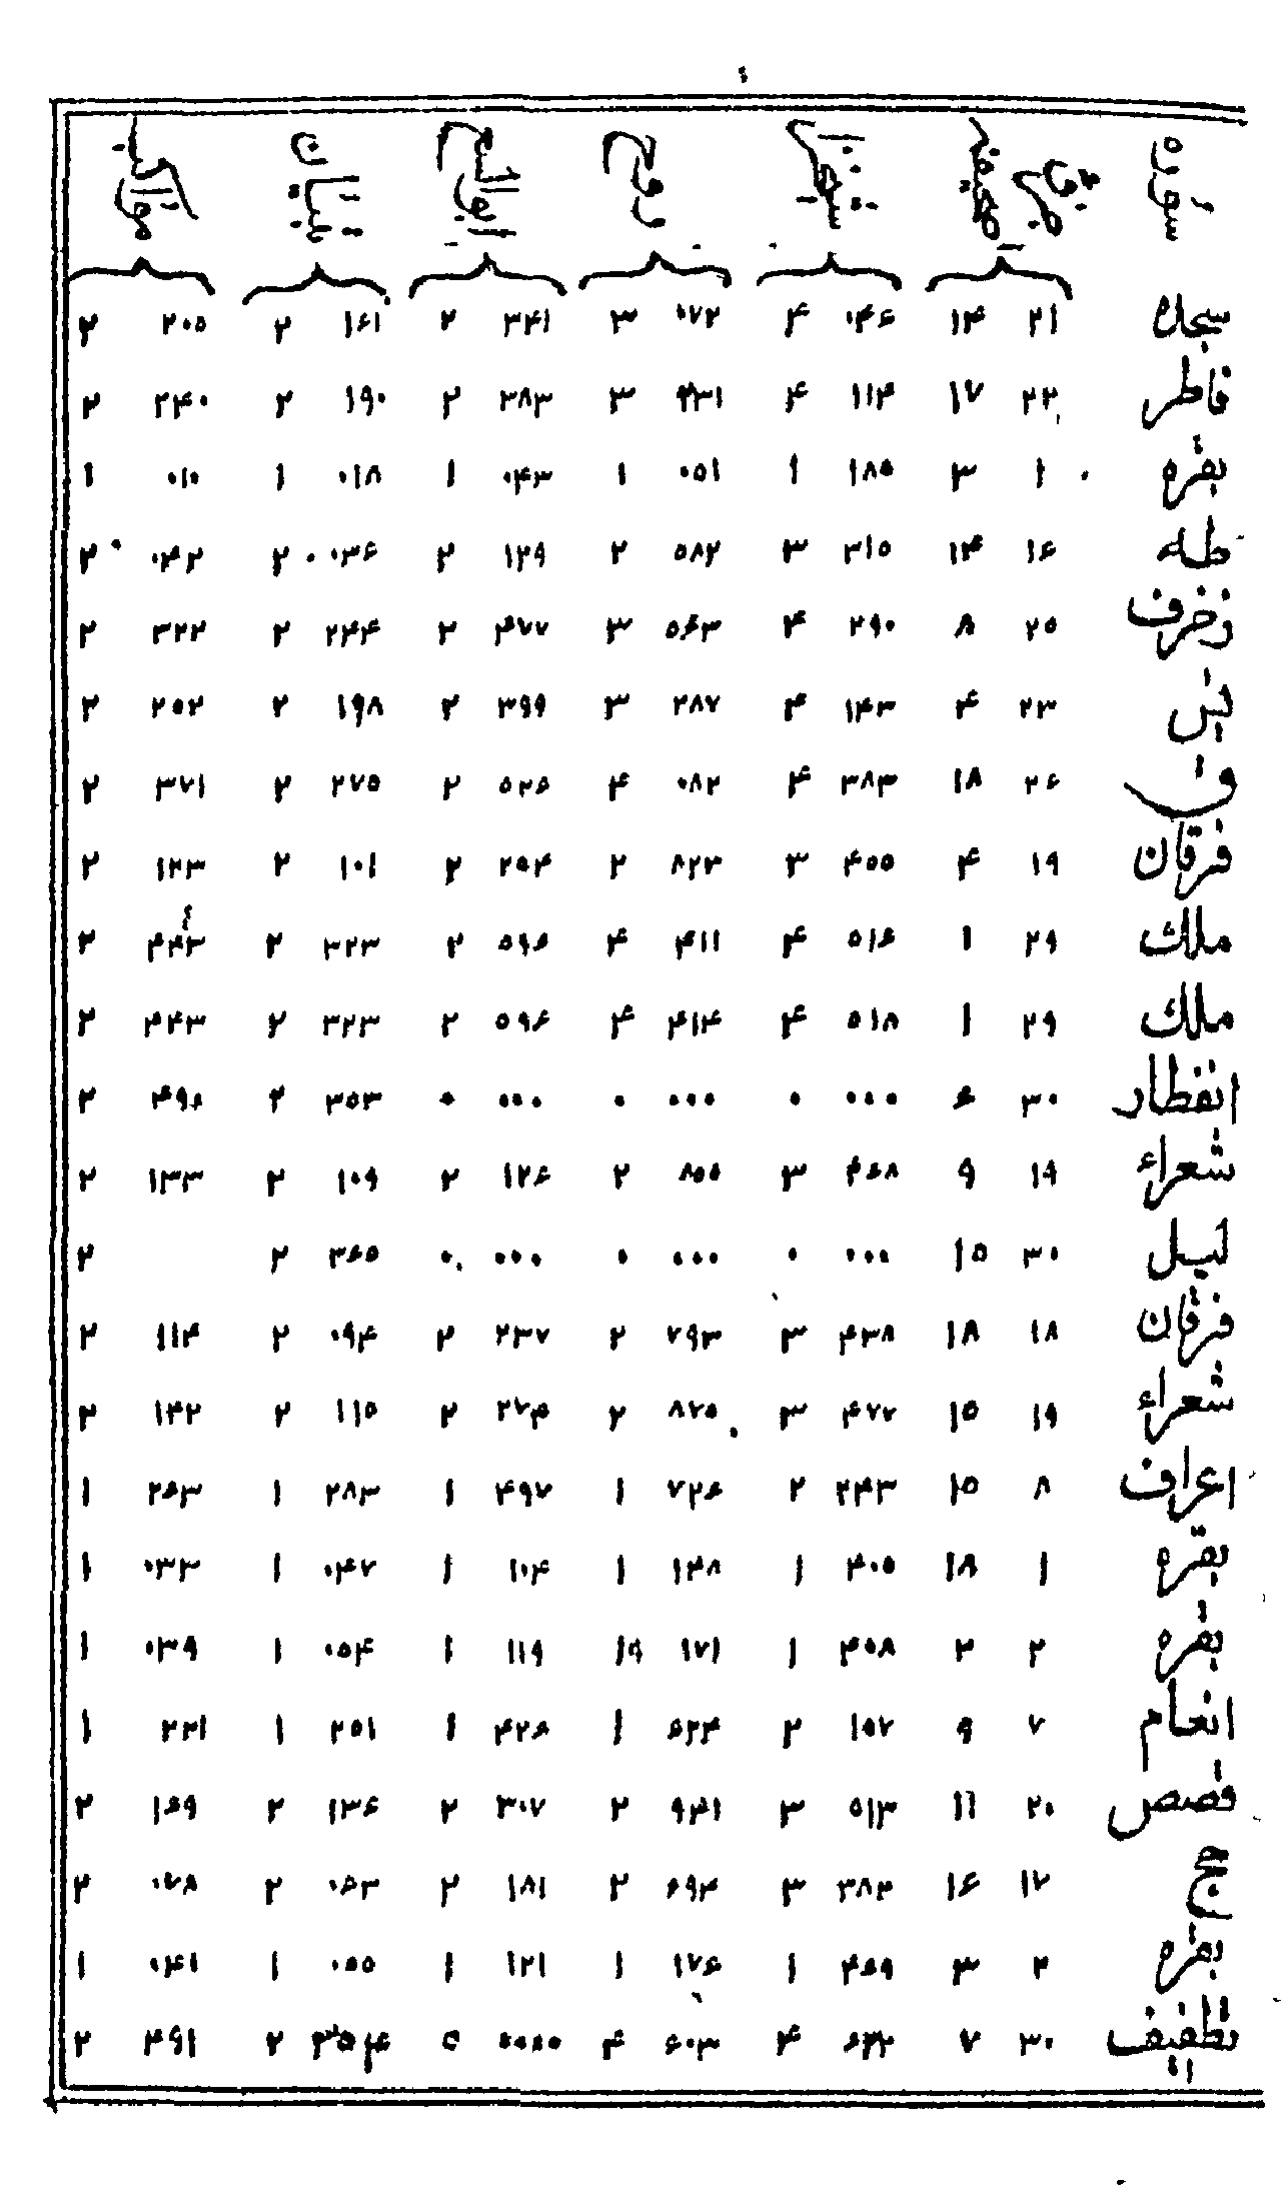 سوره
سجده ۲۱ ۱۴ ۰۴۶ ۴ ۰۷۲ ۳ ۳۴۱ ۲ ۱۶۱ ۲ ۲۰۵ ۲
فاطر ۲۲ ۱۷ ۱۱۴ ۴ ۳ ۳۸۳ ۲ ۱۹۰ ۲ ۲۴۰ ۲
بقره ۱ ۳ ۱۸۵ ۱ ۰۵۱ ۱ ۰۴۳ ۱ ۰۱۸ ۱ ۰۱۰ ۱
طه ۱۶ ۱۴ ۳۱۵ ۳ ۵۸۲ ۲ ۱۲۹ ۲ ۰۳۶ ۲ ۰۴۲ ۲
زخرف ۲۵ ۸ ۲۹۰ ۴ ۵۶۳ ۳ ۴۷۷ ۲ ۲۴۴ ۲ ۳۲۲ ۲
یس ۲۳ ۴ ۱۴۳ ۴ ۲۸۷ ۳ ۳۹۹ ۲ ۱۹۸ ۲ ۲۵۲ ۲
ق ۲۶ ۱۸ ۳۸۳ ۴ ۰۸۲ ۴ ۵۲۶ ۲ ۲۷۵ ۲ ۳۷۱ ۲
فرقان ۱۹ ۴ ۴۵۵ ۳ ۸۲۳ ۲ ۲۵۴ ۲ ۱۰۱ ۲ ۱۲۳ ۲
ملك ۲۹ ۱ ۵۱۶ ۴ ۴۱۱ ۴ ۵۹۶ ۲ ۳۲۳ ۲ ۴۴۳ ۲
ملك ۲۹ ۱ ۵۱۸ ۴ ۴۱۴ ۴ ۵۹۶ ۲ ۳۲۳ ۲ ۴۴۳ ۲
انفطار ۳۰ ۶ ۰۰۰ ۰ ۰۰۰ ۰ ۰۰۰ ۰ ۳۵۳ ۲ ۴۹۶ ۲
شعراء ۱۹ ۹ ۴۶۸ ۳ ۸۵۵ ۲ ۱۲۶ ۲ ۱۰۹ ۲ ۱۳۳ ۲
لیل ۳۰ ۱۵ ۰۰۰ ۰ ۰۰۰ ۰ ۰۰۰ ۰ ۳۶۵ ۲ ۲
فرقان ۱۸ ۱۸ ۴۳۸ ۳ ۷۹۳ ۲ ۲۳۷ ۲ ۰۹۴ ۲ ۱۱۴ ۲
شعراء ۱۹ ۱۵ ۴۷۷ ۳ ۸۷۵ ۲ ۲۷۴ ۲ ۱۱۵ ۲ ۱۴۲ ۲
اعراف ۸ ۱۵ ۲۴۳ ۲ ۷۲۶ ۱ ۴۹۷ ۱ ۲۸۳ ۱ ۲۶۳ ۱
بقره ۱ ۱۸ ۴۰۵ ۱ ۱۴۸ ۱ ۱۰۴ ۱ ۰۴۷ ۱ ۰۳۳ ۱
بقره ۲ ۲ ۴۰۸ ۱ ۱۷۱ ۱۹ ۱۱۹ ۱ ۰۵۴ ۱ ۰۳۹ ۱
انعام ۷ ۹ ۱۵۷ ۲ ۶۲۴ ۱ ۴۲۶ ۱ ۲۵۱ ۱ ۲۲۱ ۱
قصص ۲۰ ۱۱ ۵۱۳ ۳ ۹۴۱ ۲ ۳۰۷ ۲ ۱۳۶ ۲ ۱۶۹ ۲
حج ۱۷ ۱۶ ۳۸۴ ۳ ۶۹۴ ۲ ۱۸۱ ۲ ۰۶۳ ۲ ۰۷۸ ۲
بقره ۲ ۳ ۴۶۹ ۱ ۱۷۶ ۱ ۱۲۱ ۱ ۰۵۵ ۱ ۰۴۱ ۱
تطفیف ۳۰ ۷ ۶۲۲ ۴ ۶۰۳ ۴ ۵ ۳۵۴ ۲ ۴۹۱ ۲